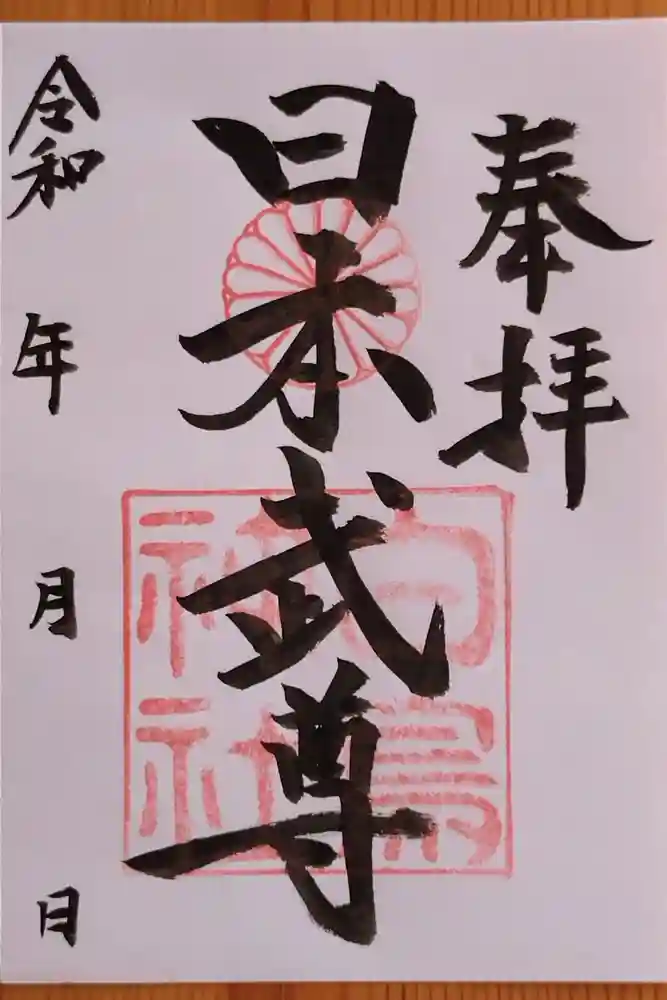 奉拝
日本武尊
白鳥
神社
令和 年 月 日